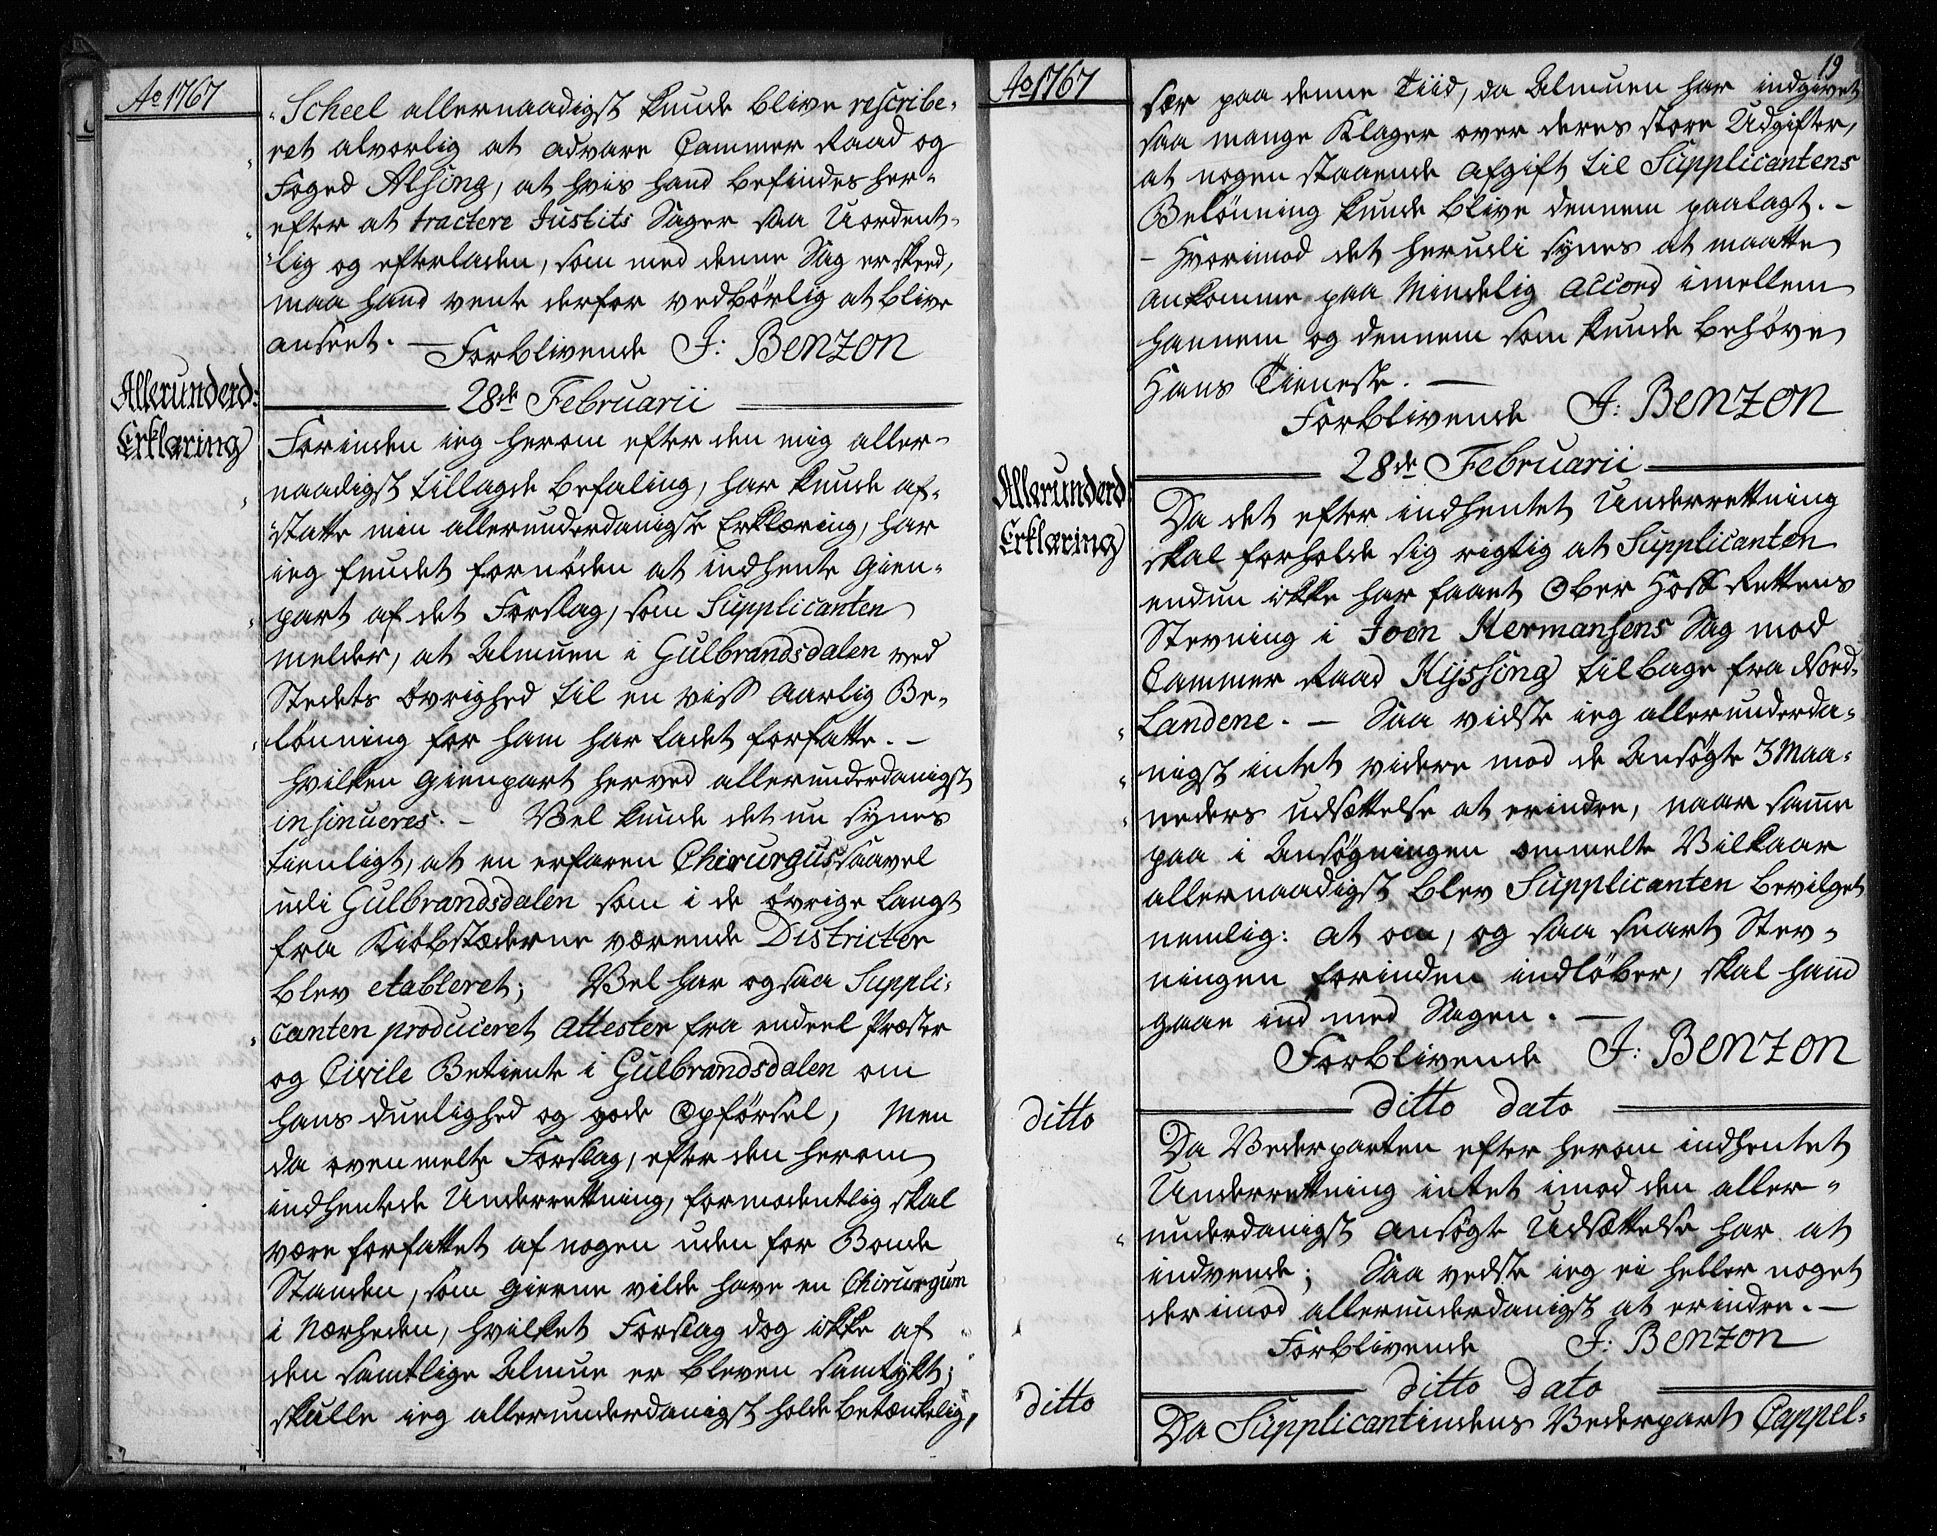 Ao 1767
Scheel allernaadigst kunde blive rescribe-
ret alvorlig at advare Cammer Raad og
Foged Alsing, at hvis hand befindes her-
efter at tractere Justits Sager saa Uordent-
lig og efterladen, som med denne Sag er skeed,
maa hand vente derfor vedbørlig at blive
anseet. — Forblivende J: Benzon
28de Februarii
Allerunderd:
Erklæring
Forinden ieg herom efter den mig aller-
naadigst tillagde befaling, har kunde af-
statte min allerunderdanigste Erklæring, har
ieg fundet fornøden at indhente Gien-
part af det Forslag, som Supplicanten
melder, at Almuen i Gulbrandsdalen ved
Stedets Øvrighed til en viss Aarlig Be-
lønning for ham har ladet forfatte. —
Hvilken Gienpart herved allerunderdanigst
insinueres. — Vel kunde det nu synes
tienligt, at en erfaren Chirurgus, saavel
udi Gulbrandsdalen som i de øvrige langt
fra Kiøbstæderne værende Districter
blev etableret; Vel har ogsaa Suppli-
canten produceret Attester fra endeel Præster
og Civile Betiente i Gulbrandsdalen om
hans duelighed og gode Opførsel, Men
da ovenmelte Forslag, efter den herom
indhentede Underrettning, formodentlig skal
være forfattet af nogen uden for Bonde
Standen, som gierne vilde have en Chirurgum
i Nærheden, hvilket Forslag dog ikke af
den samtlige Almue er bleven samtykt;
skulle ieg allerunderdanigst holde betænkelig,
Ao 1767
19
sær paa denne Tiid, da Almuen har indgivet
saa mange Klager over deres store Udgifter,
at nogen staaende Afgift til Supplicantens
Belønning kunde blive dennem paalagt. —
— Hvorimod det herudi synes at maatte
ankomme paa Mindelig Accord imellem
hannem og dennem som kunde behøve
Hans Tieneste. —
Forblivende J: Benzon
28de Februarii
Allerunderd:
Erklæring
Da det efter indhentet Underrettning
skal forholde sig rigtig at Supplicanten
endnu ikke har faaet Ober Hoff Rettens
Stevning i Joen Hermansens Sag mod
Cammer Raad Hyssing tilbage fra Nord-
Landene. — Saa vidste ieg allerunderda-
nigst intet videre mod de Ansøgte 3 Maa-
neders udsættelse at erindre, naar samme
paa i Ansøgningen ommelte Vilkaar
allernaadigst blev Supplicanten bevilget
nemlig: at om, og saa snart Stev-
ningen forinden indløber, skal hand
gaae ind med Sagen. —
Forblivende J: Benzon
ditto dato
ditto
Da Vederparten efter herom indhentet
Underrettning intet imod den aller-
underdanigst Ansøgte Udsættelse har at
indvende; Saa vedste ieg ei heller noget
derimod allerunderdanigst at erindre. —
Forblivende J: Benzon
ditto dato
ditto
Da Supplicantindens Vederpart Cappel-